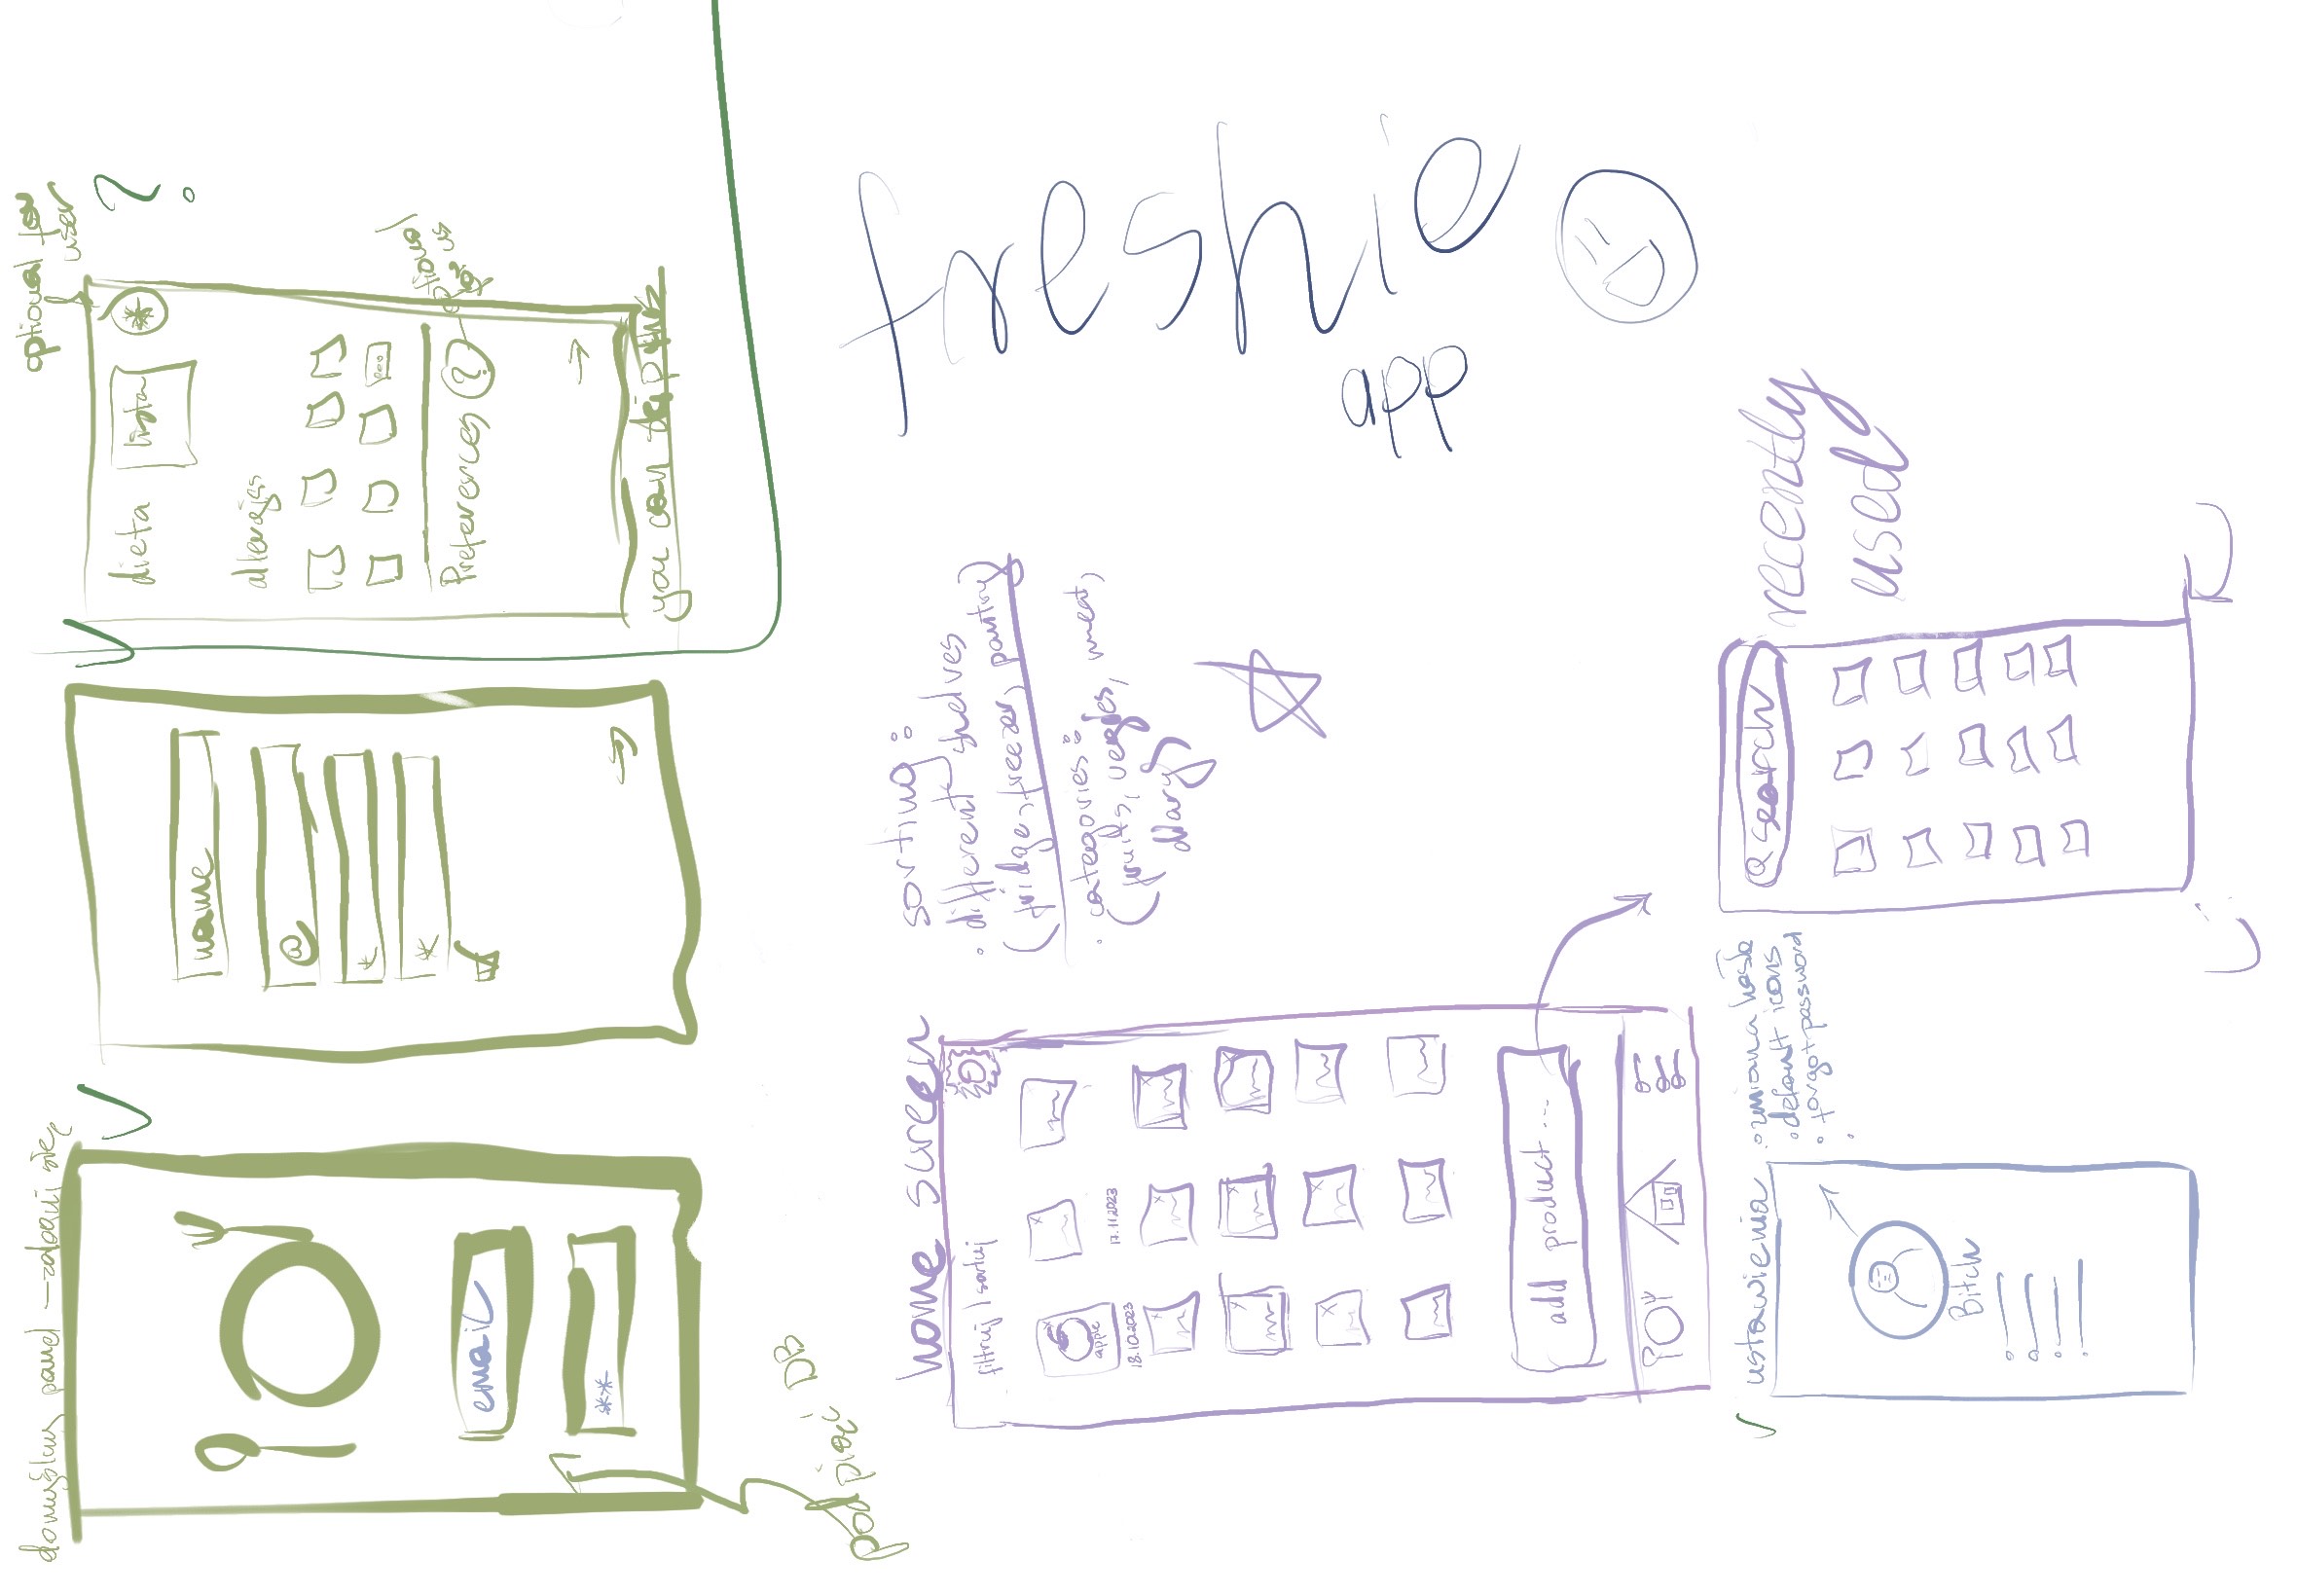 domyślny panel - zaloguj się
email
**
podpiąć DB
name
@
*
*
optional for user
dieta
lista
*
?
allergies
Preferences ?
optional for us
you can skip this
home screen
filtruj / sortuj
apple
18.10.2023
17.11.2023
add product...
sorting:
• different shelves
(fridge, freezer, pantry)
• categories:
(fruits, veggies, meat,
diary)
Freshio
app
ustawienia
• zmiana hasła
• default icons
• forgot password
•
Bitch
search
recently
used